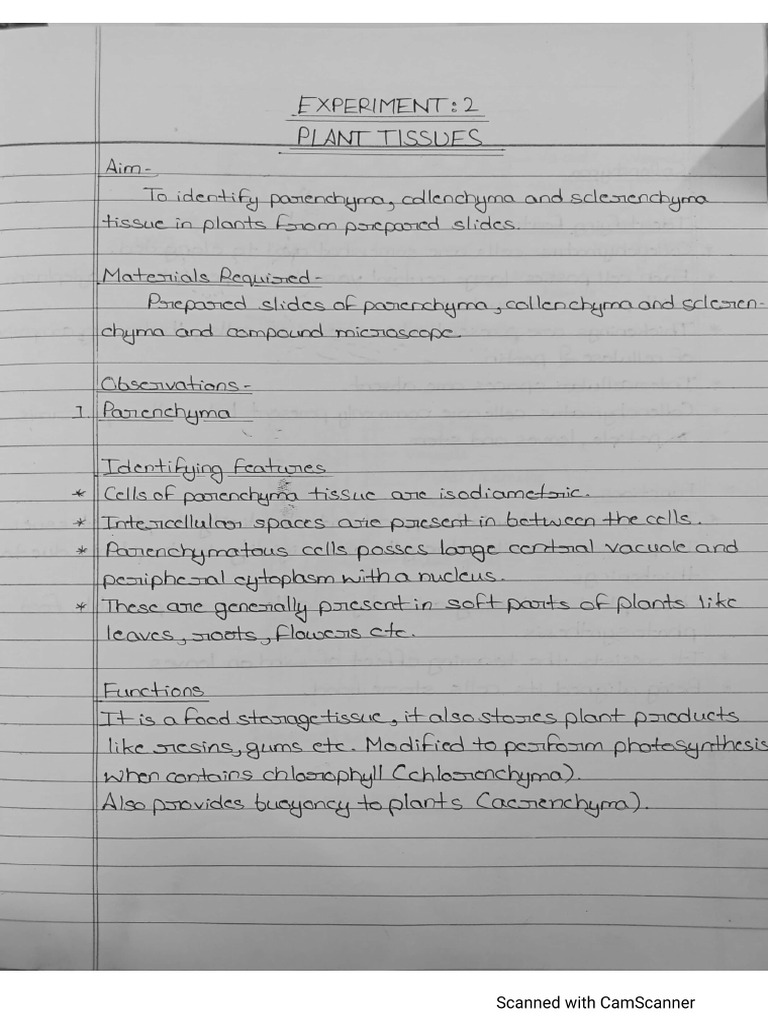 EXPERIMENT: 2
PLANT TISSUES
Aim-
To identify parenchyma, collenchyma and sclerenchyma
tissue in plants from prepared slides.
Materials Required-
Prepared slides of parenchyma, collenchyma and scleren-
chyma and compound microscope.
Observations-
1. Parenchyma
Identifying Features
* Cells of parenchyma tissue are isodiametric.
* Intercellular spaces are present in between the cells.
* Parenchymatous cells posses large central vacuole and
peripheral cytoplasm with a nucleus.
* These are generally present in soft parts of plants like
leaves, roots, flowers etc.
Functions
It is a food storage tissue, it also stores plant products
like resins, gums etc. Modified to perform photosynthesis
when contains chlorophyll (chlorenchyma).
Also provides buoyoncy to plants (aerenchyma).
Scanned with CamScanner